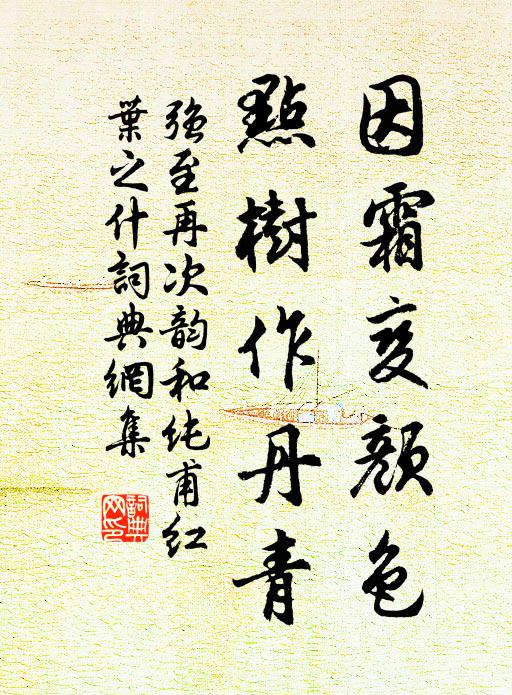 因霜变颜色
點樹作丹青
强至再次韵和纯甫红
葉之什詞典網集
詞典
网印